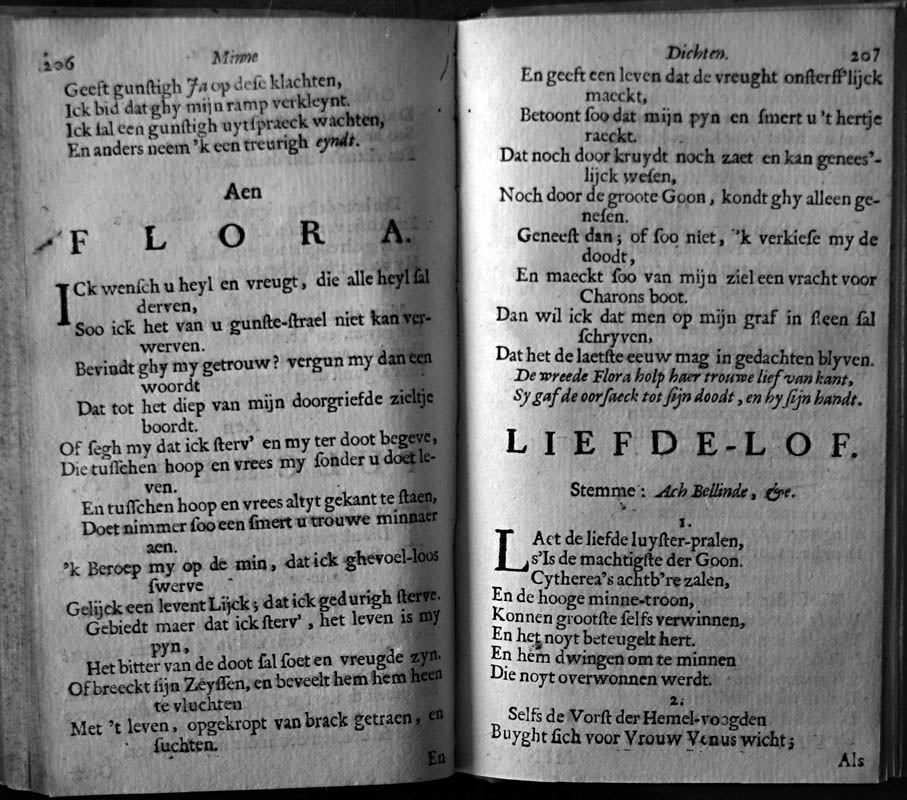 206 Minne
Geeft gunſtigh Ja op deſe klachten,
Ick bid dat ghy mijn ramp verkleynt.
Ick ſal een gunſtigh uytſpraeck wachten,
En anders neem 'k een treurigh eyndt.
Aen
FLORA.
ICk wenſch u heyl en vreugt, die alle heyl ſal
derven,
Soo ick het van u gunſte-ſtrael niet kan ver-
werven.
Bevindt ghy my getrouw? vergun my dan een
woordt
Dat tot het diep van mijn doorgriefde zieltje
boordt.
Of ſegh my dat ick ſterv' en my ter doot begeve,
Die tuſſchen hoop en vrees my ſonder u doet le-
ven.
En tuſſchen hoop en vrees altyt gekant te ſtaen,
Doet nimmer ſoo een ſmert u trouwe minnaer
aen.
'k Beroep my op de min, dat ick ghevoel-loos
ſwerve
Gelijck een levent Lijck; dat ick gedurigh ſterve.
Gebiedt maer dat ick ſterv', het leven is my
pyn,
Het bitter van de doot ſal ſoet en vreugde zyn.
Of breeckt ſijn Zeyſſen, en beveelt hem hem heen
te vluchten
Met 't leven, opgekropt van brack getraen, en
ſuchten.
En
Dichten. 207
En geeft een leven dat de vreught onſterff'lijck
maeckt,
Betoont ſoo dat mijn pyn en ſmert u 't hertje
raeckt.
Dat noch door kruydt noch zaet en kan genees'-
lijck weſen,
Noch door de groote Goon, kondt ghy alleen ge-
neſen.
Geneeſt dan; of ſoo niet, 'k verkieſe my de
doodt,
En maeckt ſoo van mijn ziel een vracht voor
Charons boot.
Dan wil ick dat men op mijn graf in ſteen ſal
ſchryven,
Dat het de laetſte eeuw mag in gedachten blyven.
De wreede Flora holp haer trouwe lief van kant,
Sy gaf de oorſaeck tot ſijn doodt, en hy ſijn handt.
LIEFDE-LOF.
Stemme: Ach Bellinde, &c.
1.
LAet de liefde luyſter-pralen,
s'Is de machtigſte der Goon.
Cytherea's achtb're zalen,
En de hooge minne-troon,
Konnen grootſte ſelfs verwinnen,
En het noyt beteugelt hert.
En hem dwingen om te minnen
Die noyt overwonnen werdt.
2.
Selfs de Vorſt der Hemel-voogden
Buyght ſich voor Vrouw Venus wicht;
Als